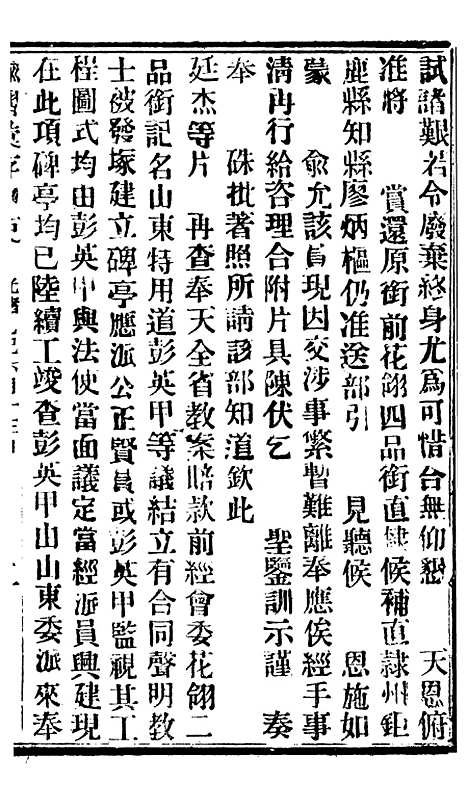 試諸艱若令廢棄終身尤爲可惜合無仰懇　天恩俯
准將　賞還原銜前花翎四品銜直隸候補直隸州鉅
鹿縣知縣廖炳樞仍准送部引　見聽候　恩施如
蒙　兪允該員現因交涉事繁暫難離奉應俟經手事
淸再行給咨理合附片具陳伏乞　聖鑒訓示謹　奏
奉　硃批著照所請該部知道欽此
廷杰等片　再查奉天全省教案賠款前經會委花翎二
品銜記名山東特用道彭英甲等議結立有合同聲明教
士被發塚建立碑亭應派公正賢員或彭英甲監視其工
程圖式均由彭英甲與法使當面議定當經派員興建現
在此項碑亭均已陸續工竣查彭英甲山山東委派來奉